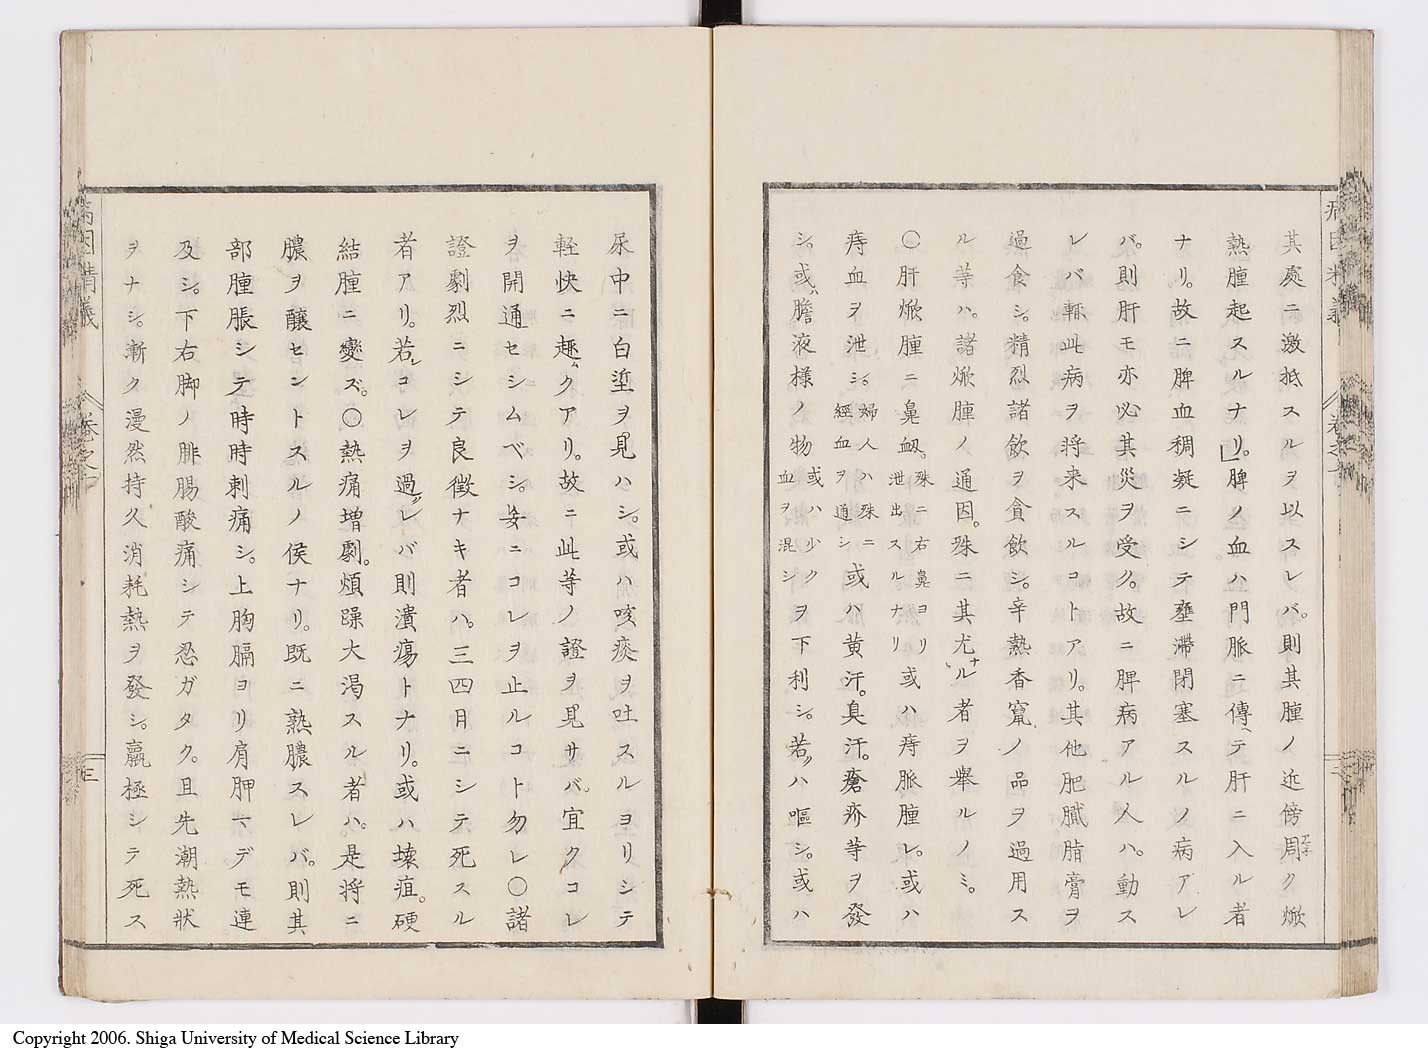 其處ニ激抵スルヲ以スレバ。則其腫ノ近傍周ク焮
熱腫起スルナリ。脾ノ血ハ門脈ニ傳ヘテ肝ニ入ル者
ナリ。故ニ脾血稠凝ニシテ壅滯閉塞スルノ病アレ
バ。則肝モ亦必其災ヲ受ク。故ニ脾病アル人ハ。動ス
レバ輙此病ヲ将来スルコトアリ。其他肥膩脂膏ヲ
過食シ。精烈諸飲ヲ貪飲シ。辛熱香竄ノ品ヲ過用ス
ル等ハ。諸焮腫ノ通因。殊ニ其尤ナル者ヲ舉ルノミ。
〇肝焮腫ニ鼻衂。殊ニ右鼻ヨリ泄出スルナリ或ハ痔脈腫レ。或ハ
痔血ヲ泄シ。婦人ハ殊ニ經血ヲ通シ或ハ黄汗。臭汗。瘡疥等ヲ發
シ。或ハ膽液様ノ物或ハ少ク血ヲ混シヲ下利シ。若クハ嘔シ。或ハ
尿中ニ白埿ヲ見ハシ。或ハ咳痰ヲ吐スルヨリシテ
軽快ニ趣クアリ。故ニ此等ノ證ヲ見サバ。宜クコレ
ヲ開通セシムベシ。妄ニコレヲ止ルコト勿レ〇諸
證劇烈ニシテ良徴ナキ者ハ。三四月ニシテ死スル
者アリ。若シコレヲ過クレバ則潰瘍トナリ。或ハ壊疽。硬
結腫ニ變ズ。〇熱痛増劇。煩躁大渇スル者ハ。是将ニ
膿ヲ釀セントスルノ候ナリ。既ニ熟膿スレバ。則其
部腫脹シテ時時刺痛シ。上胸膈ヨリ肩胛マデモ連
及シ。下右脚ノ腓腸酸痛シテ忍ガタク。且先潮熱状
ヲナシ。漸ク漫然持久消耗熱ヲ發シ。羸極シテ死ス
病因精義
巻之十
三
Copyright 2006. Shiga University of Medical Science Library